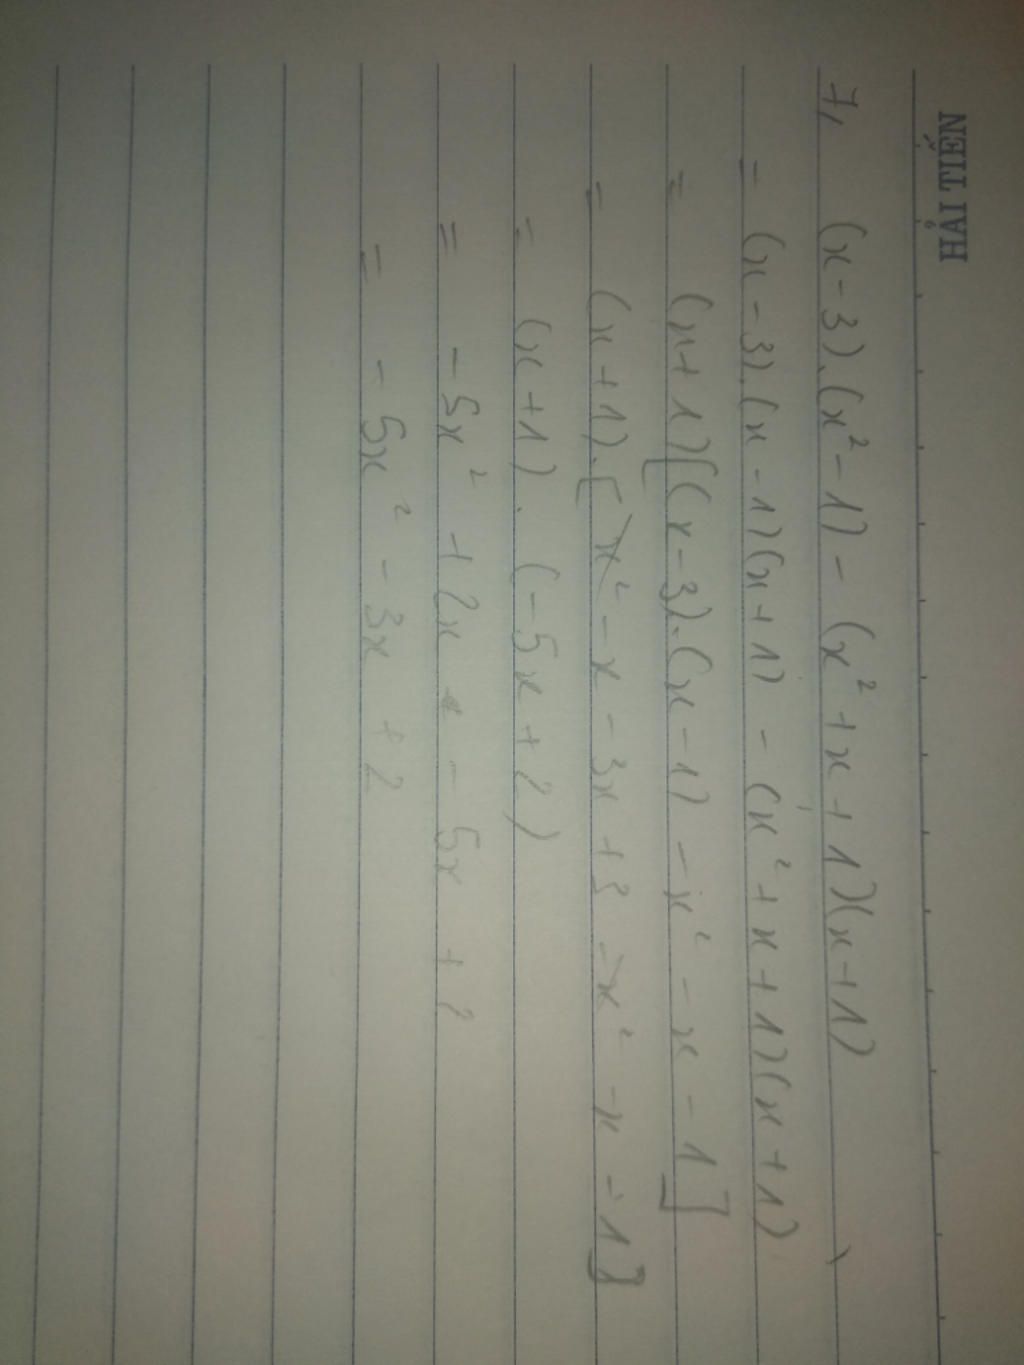 HẢI TIẾN
7, (x-3).(x²-1) - (x²+x+1)(x+1)
= (x-3).(x-1)(x+1) - (x²+x+1)(x+1)
= (x+1)[(x-3).(x-1) - x² - x - 1]
= (x+1).[x² - x - 3x + 3 - x² - x - 1]
= (x+1).(-5x+2)
= -5x² + 2x - 5x + 2
= -5x² - 3x + 2